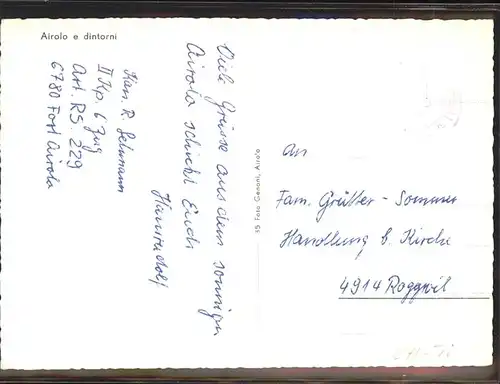 Airolo e dintorni
Viele Grüsse aus dem sonnigen
Airolo schickt Euch
Hansrudolf
Kan. R. Lehmann
II Kp. 6 Zug
Art. RS. 229
6780 Fort Airolo
15 Foto Genoni, Airolo
An
Fam. Grütter - Sommer
Handlung b. Kirche
4914 Roggwil
CH-TI